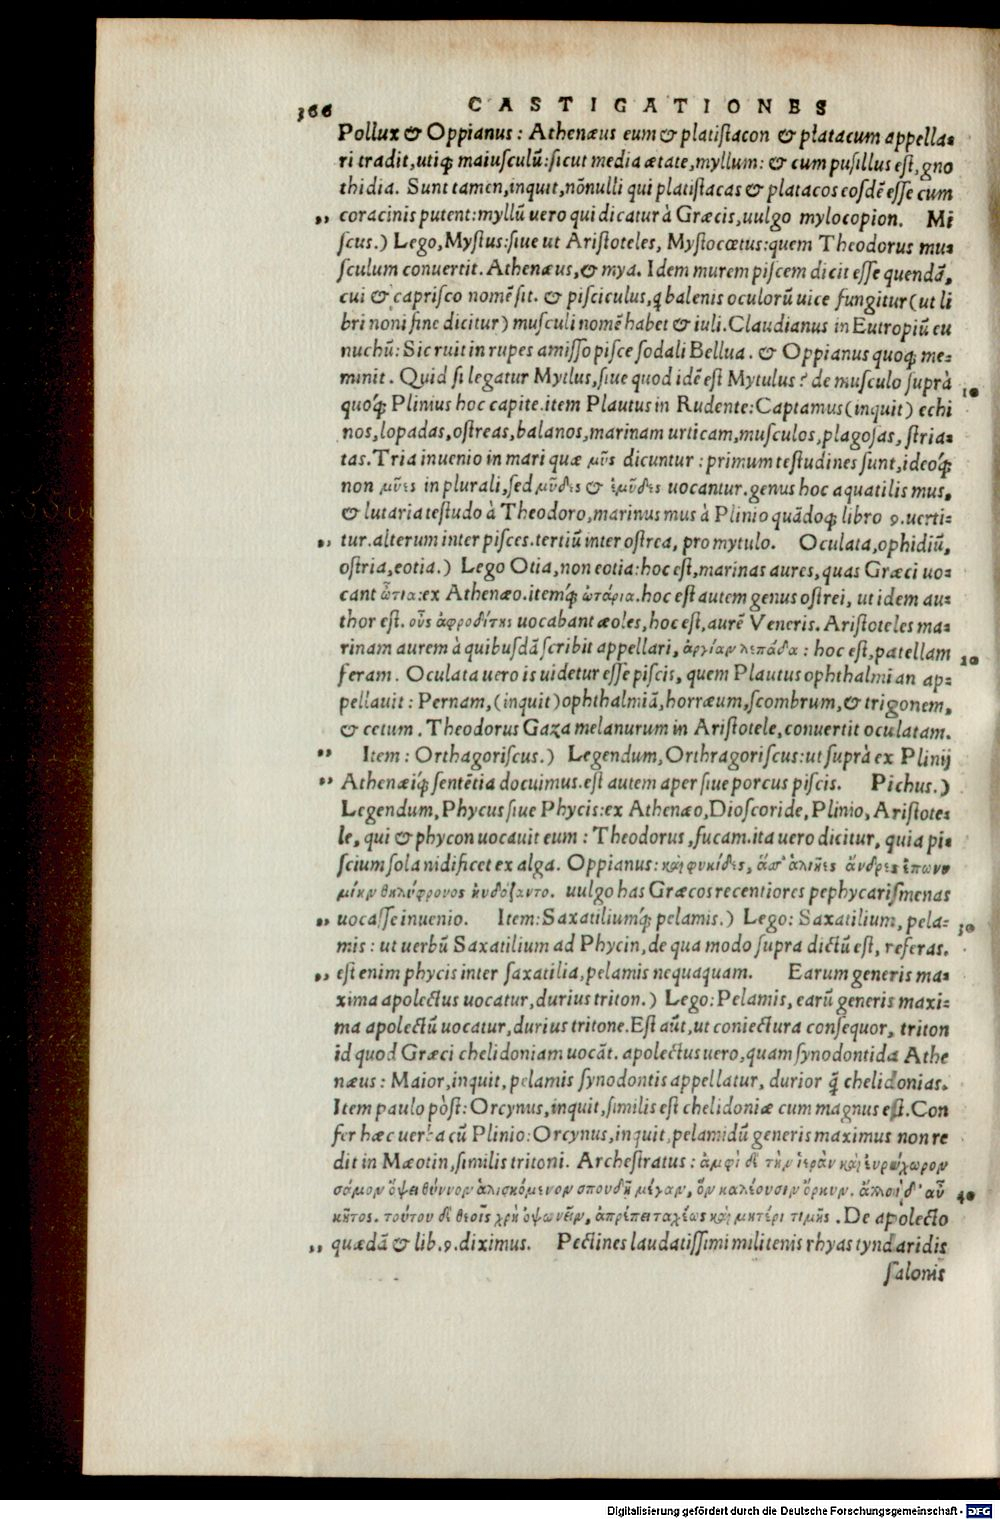 366 CASTIGATIONES
Pollux & Oppianus: Athenæus eum & platiſtacon & platacum appella-
ri tradit, utiq; maiuſculũ: ſicut media ætate, myllum: & cum puſillus eſt, gno
thidia. Sunt tamen, inquit, nõnulli qui platiſtacas & platacos eoſdẽ eſſe cum
,, coracinis putent: myllũ uero qui dicatur à Græcis, uulgo mylocopion. Mi
ſcus.) Lego, Myſtus: ſiue ut Ariſtoteles, Myſtocœtus: quem Theodorus mu-
ſculum conuertit. Athenæus, & mya. Idem murem piſcem dicit eſſe quendã,
cui & capriſco nomẽ ſit. & piſciculus, q balenis oculorũ uice fungitur (ut li
bri noni fine dicitur) muſculi nomẽ habet & iuli. Claudianus in Eutropiũ eu
nuchũ: Sic ruit in rupes amiſſo piſce ſodali Bellua. & Oppianus quoq; me-
minit. Quid ſi legatur Mytlus, ſiue quod idẽ eſt Mytulus? de muſculo ſuprà 10
quoq́; Plinius hoc capite. item Plautus in Rudente: Captamus (inquit) echi
nos, lopadas, oſtreas, balanos, marinam urticam, muſculos, plagoſas, ſtria-
tas. Tria inuenio in mari quæ μῦς dicuntur: primum teſtudines ſunt, ideoq́;
non μῦες in plurali, ſed μῦδες & ἐμῦδες uocantur. genus hoc aquatilis mus,
& lutaria teſtudo à Theodoro, marinus mus à Plinio quãdoq; libro 9. uerti-
,, tur. alterum inter piſces. tertiũ inter oſtrea, pro mytulo. Oculata, ophidiũ,
oſtria, eotia.) Lego Otia, non eotia: hoc eſt, marinas aures, quas Græci uo-
cant ὦτια: ex Athenæo. itemq́; ὠτάρια. hoc eſt autem genus oſtrei, ut idem au-
thor eſt. οὖς ἀφροδίτης uocabant æoles, hoc eſt, aurẽ Veneris. Ariſtoteles ma-
rinam aurem à quibuſdã ſcribit appellari, ἀργίαν λεπάδα: hoc eſt, patellam 20
feram. Oculata uero is uidetur eſſe piſcis, quem Plautus ophthalmian ap-
pellauit: Pernam, (inquit) ophthalmiã, horræum, ſcombrum, & trigonem,
& cetum. Theodorus Gaza melanurum in Ariſtotele, conuertit oculatam.
,, Item: Orthagoriſcus.) Legendum, Orthragoriſcus: ut ſuprà ex Plinij
,, Athenæiq́; ſentẽtia docuimus. eſt autem aper ſiue porcus piſcis. Pichus.)
Legendum, Phycus ſiue Phycis: ex Athenæo, Dioſcoride, Plinio, Ariſtote-
le, qui & phycon uocauit eum: Theodorus, fucam. ita uero dicitur, quia pi-
ſcium ſola nidificet ex alga. Oppianus: καὶ φυκίδες, ἅς θ᾽ ἁλιῆες ἄνδρες ἐπωνυ
μίην θηλύφρονος ηὐδάξαντο. uulgo has Græcos recentiores pephycariſmenas
,, uocaſſe inuenio. Item: Saxatiliumq́; pelamis.) Lego: Saxatilium, pela- 30
mis: ut uerbũ Saxatilium ad Phycin, de qua modo ſupra dictũ eſt, referas.
,, eſt enim phycis inter ſaxatilia, pelamis nequaquam. Earum generis ma-
xima apolectus uocatur, durius triton.) Lego: Pelamis, earũ generis maxi-
ma apolectũ uocatur, durius tritone. Eſt aũt, ut coniectura conſequor, triton
id quod Græci chelidoniam uocãt. apolectus uero, quam ſynodontida Athe
næus: Maior, inquit, pelamis ſynodontis appellatur, durior q̃ chelidonias.
Item paulo pòſt: Orcynus, inquit, ſimilis eſt chelidoniæ cum magnus eſt. Con
fer hæc uerba cũ Plinio: Orcynus, inquit, pelamidũ generis maximus non re
dit in Mæotin, ſimilis tritoni. Archeſtratus: ἀμφὶ δὲ τὴν ἱερὰν καὶ εὐρύχωρον
σάμον ὄψει θύννον ἁλισκόμενον σπουδῇ μέγαν, ὃν καλέουσιν ὄρκυν. ἄλλοι δ᾽ αὖ 40
κῆτος. τούτου δὲ θεοῖς χρὴ ὀψωνεῖν, ἀπρέπει ταχέως καὶ μητέρι τιμῆς. De apolecto
,, quædã & lib. 9. diximus. Pectines laudatiſſimi militenis rhyas tyndaridis
ſalonis
Digitalisierung gefördert durch die Deutsche Forschungsgemeinschaft - DFG